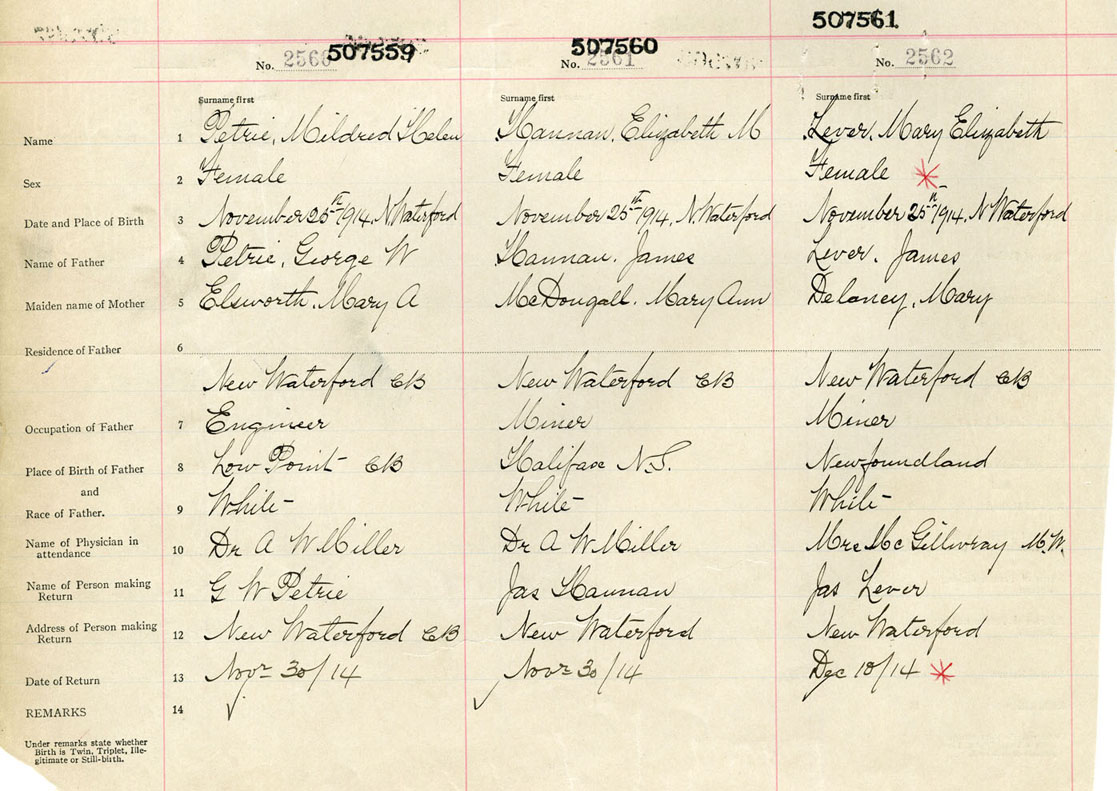 507561
507559 507560
No. 2560 No. 2561 No. 2562
Surname first Surname first Surname first
Name 1 Petrie, Mildred Helen Hannan, Elizabeth M Lever, Mary Elizabeth
Sex 2 Female Female Female
Date and Place of Birth 3 November 25th 1914, N. Waterford November 25th 1914, N. Waterford November 25th 1914, N Waterford
Name of Father 4 Petrie, George W Hannan, James Lever, James
Maiden name of Mother 5 Elsworth, Mary A McDougall, Mary Ann Delaney, Mary
Residence of Father 6
New Waterford CB New Waterford CB New Waterford CB
Occupation of Father 7 Engineer Miner Miner
Place of Birth of Father 8 Low Point CB Halifax N.S. Newfoundland
and
Race of Father. 9 White White White
Name of Physician in
attendance 10 Dr A W Miller Dr A W Miller Mrs McGillivray M.W.
Name of Person making
Return 11 G W Petrie Jas Hannan Jas Lever
Address of Person making
Return 12 New Waterford CB New Waterford New Waterford
Date of Return 13 Novr 30/14 Novr 30/14 Dec 10/14
REMARKS 14
Under remarks state whether
Birth is Twin, Triplet, Ille-
gitimate or Still-birth.